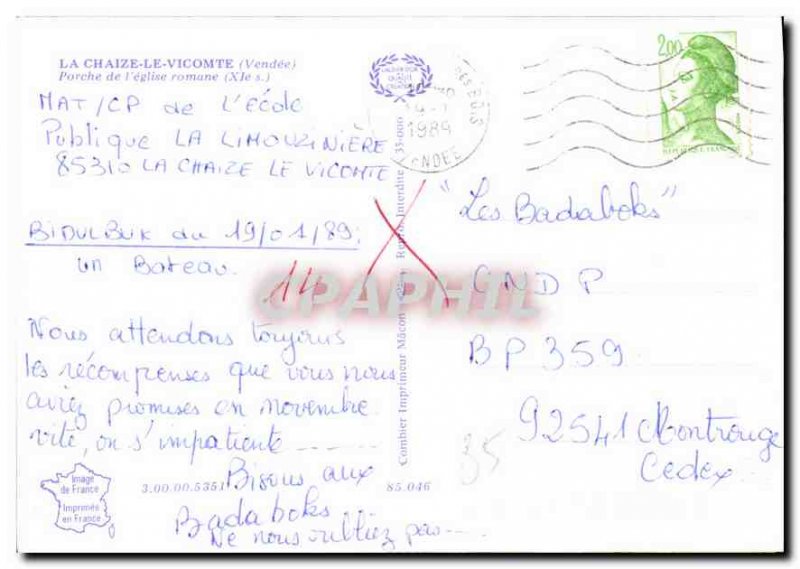 LA CHAIZE-LE-VICOMTE (Vendée)
Porche de l'église romane (XIe s.)
MAT/CP de l'école
Publique LA LIMOUZINIÈRE
85310 LA CHAIZE LE VICOMTE
BIDULBUK du 19/01/89:
un Bateau.
14
Nous attendons toujours
les récompenses que vous nous
aviez promises en novembre.
vite, on s'impatiente
Bisous aux
Badaboks...
Ne nous oubliez pas
Image
de France
Imprimés
en France
3.00.00.5351
85.046
Combier Imprimeur Mâcon
Interdite 35-000
1989
VENDEE
2,00
"Les Badaboks"
CNDP
BP 359
92541 Montrouge
Cedex
35
CPAPHIL